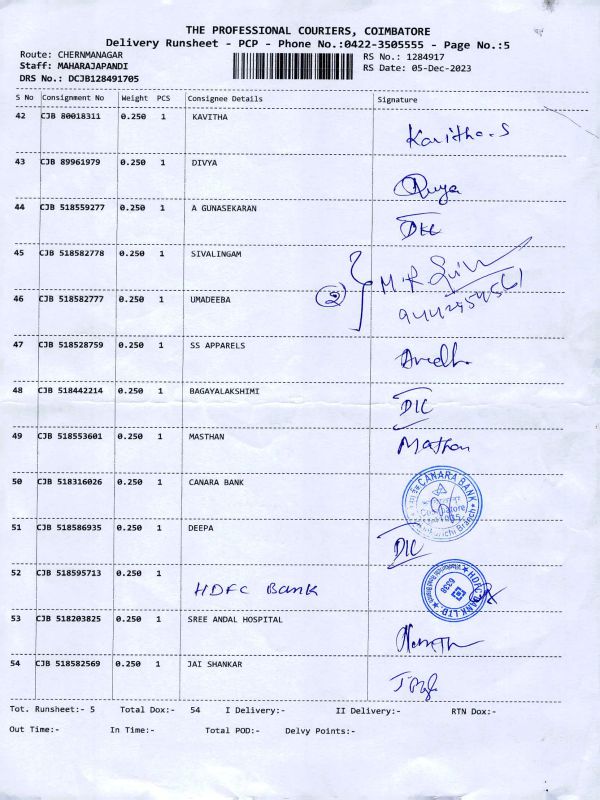 THE PROFESSIONAL COURIERS, COIMBATORE
Delivery Runsheet - PCP - Phone No.:0422-3505555 - Page No.:5
Route: CHERNMANAGAR RS No.: 1284917
Staff: MAHARAJAPANDI RS Date: 05-Dec-2023
DRS No.: DCJB128491705
S No Consignment No Weight PCS Consignee Details Signature
42 CJB 80018311 0.250 1 KAVITHA Kavitha.S
43 CJB 89961979 0.250 1 DIVYA
44 CJB 518559277 0.250 1 A GUNASEKARAN
45 CJB 518582778 0.250 1 SIVALINGAM
46 CJB 518582777 0.250 1 UMADEEBA 2
47 CJB 518528759 0.250 1 SS APPARELS
48 CJB 518442214 0.250 1 BAGAYALAKSHIMI
49 CJB 518553601 0.250 1 MASTHAN Mathan
50 CJB 518316026 0.250 1 CANARA BANK CANARA BANK
51 CJB 518586935 0.250 1 DEEPA
52 CJB 518595713 0.250 1 HDFC Bank HDFC BANK LTD.
53 CJB 518203825 0.250 1 SREE ANDAL HOSPITAL
54 CJB 518582569 0.250 1 JAI SHANKAR
Tot. Runsheet:- 5 Total Dox:- 54 I Delivery:- II Delivery:- RTN Dox:-
Out Time:- In Time:- Total POD:- Delvy Points:-